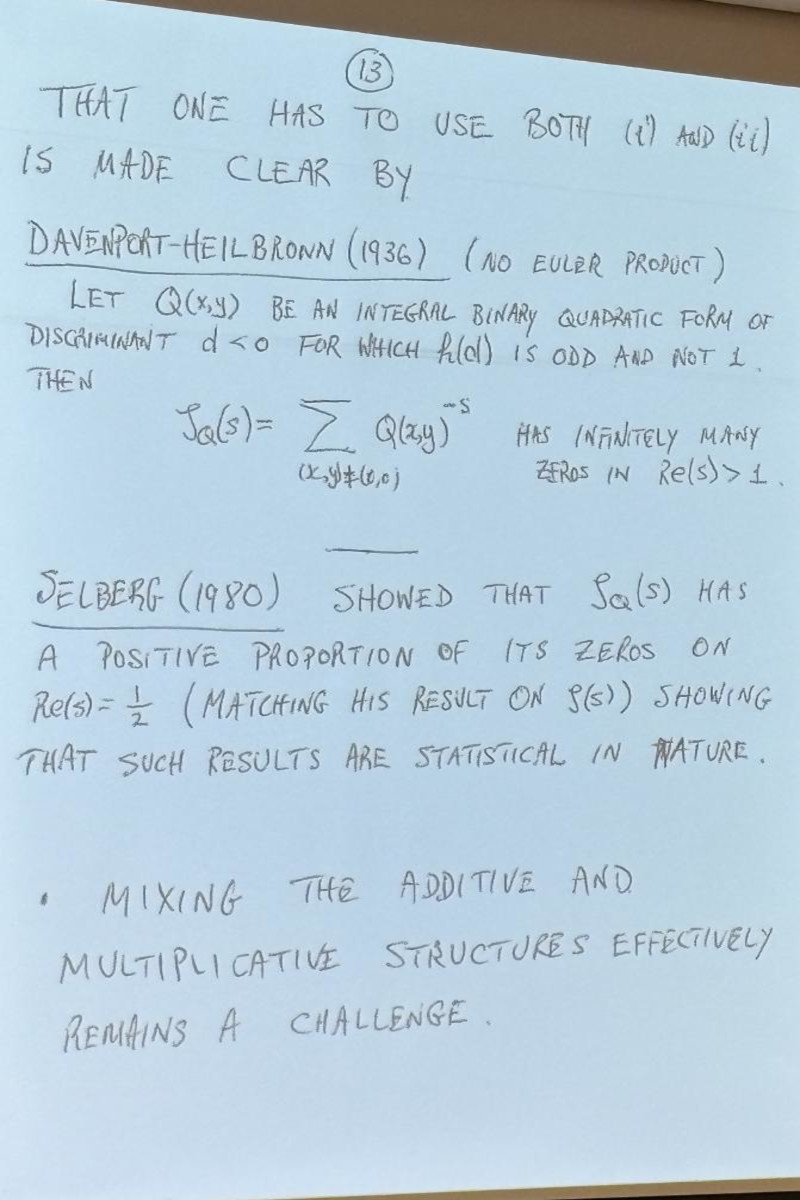 13
THAT ONE HAS TO USE BOTH (i) AND (ii)
IS MADE CLEAR BY
DAVENPORT-HEILBRONN (1936) (NO EULER PRODUCT)
LET Q(x,y) BE AN INTEGRAL BINARY QUADRATIC FORM OF
DISCRIMINANT d<0 FOR WHICH h(d) IS ODD AND NOT 1.
THEN
ζ_Q(s) = ∑_{(x,y)≠(0,0)} Q(x,y)^{-s} HAS INFINITELY MANY
ZEROS IN Re(s)>1.
SELBERG (1980) SHOWED THAT ζ_Q(s) HAS
A POSITIVE PROPORTION OF ITS ZEROS ON
Re(s) = 1/2 (MATCHING HIS RESULT ON ζ(s)) SHOWING
THAT SUCH RESULTS ARE STATISTICAL IN NATURE.
• MIXING THE ADDITIVE AND
MULTIPLICATIVE STRUCTURES EFFECTIVELY
REMAINS A CHALLENGE.